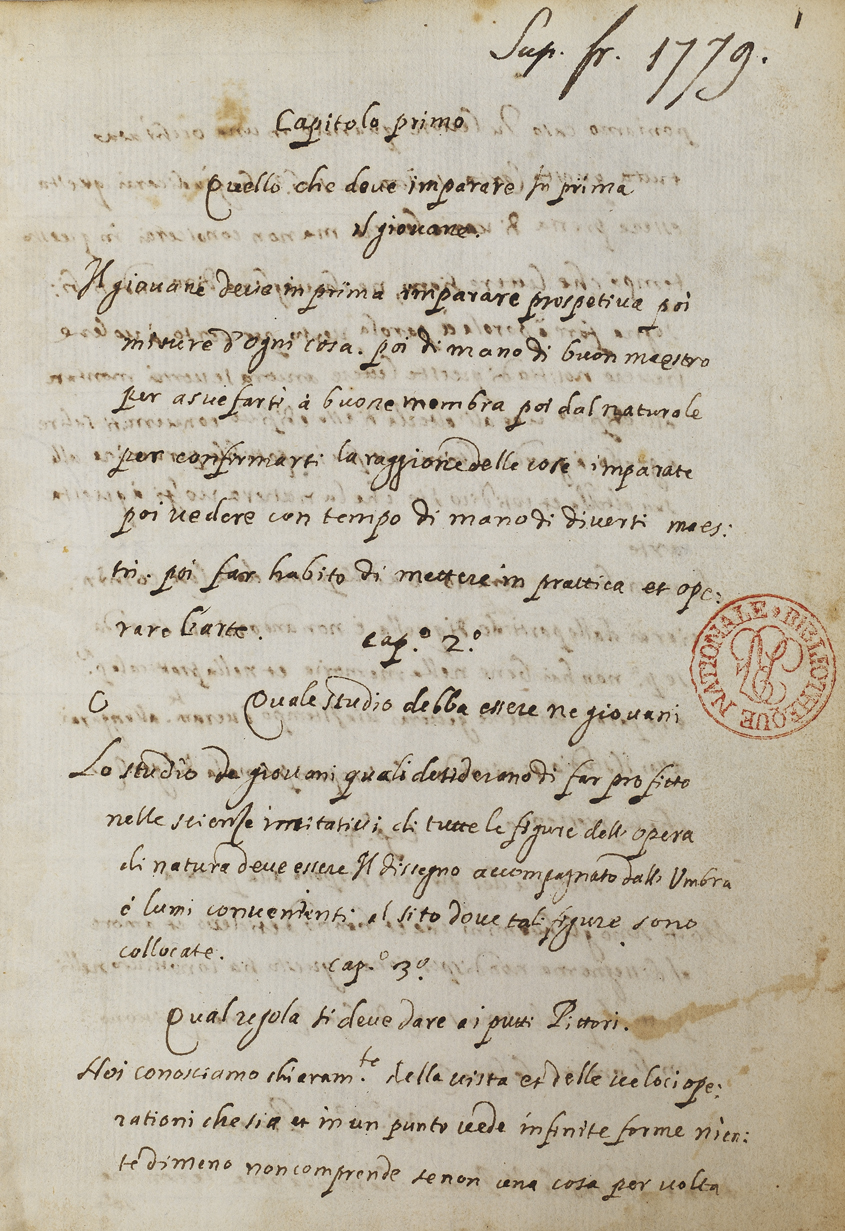 1
Sup. fr. 1779.
Capitolo primo
Quello che deve imparare in prima
il giovane.
Il giovane deve in prima imparare prospetiva poi
misure d'ogni cosa. poi di mano di buon maestro
per asuefarsi à buone membra poi dal naturale
per confirmarsi la raggione delle cose imparate
poi vedere con tempo di mano di diversi maes:
tri. poi far habito di mettere in prattica et ope:
rare l'arte.
cap.º 2.º
C Quale studio debba essere ne giovani
Lo studio de giovani quali desiderano di far profitto
nelle sciense imitativi di tutte le figure dell opera
di natura deve essere Il dissegno accompagnato dall Umbra
é lumi convenienti al sito dove tali figure sono
collocate.
cap.º 3º.
Qual regola si deve dare a i putti Pittori.
Noi conosciamo chiaram.te della vista et delle veloci ope:
rationi che sia et in un punto vede infinite forme nien:
te dimeno non comprende se non una cosa per volta
BIBLIOTHEQUE NATIONALE